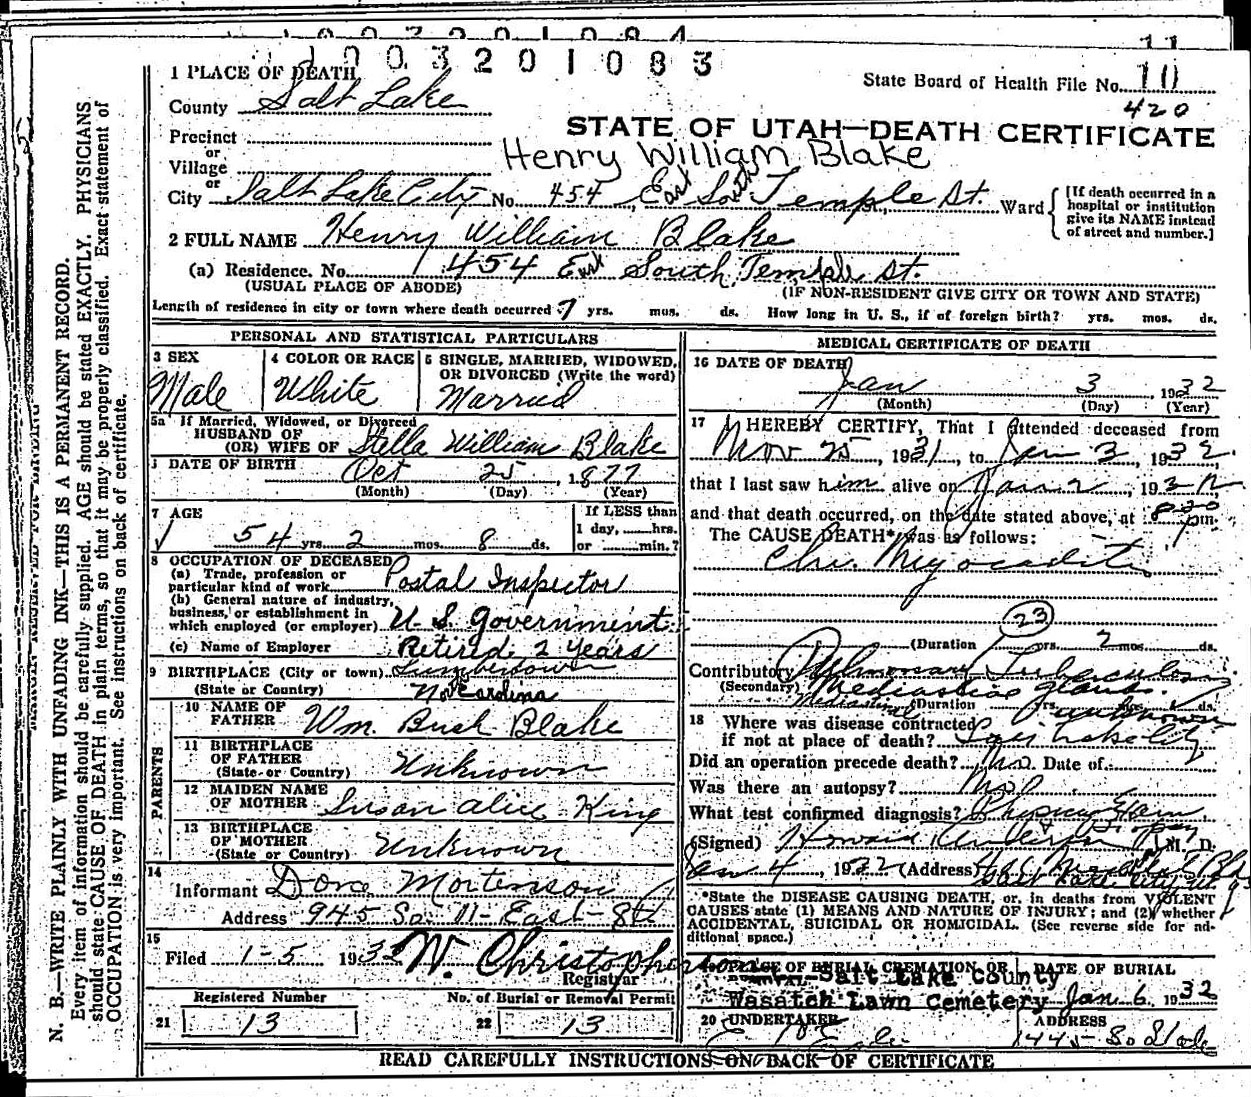 1003201083
11
1 PLACE OF DEATH
State Board of Health File No. 10
County Salt Lake
420
STATE OF UTAH—DEATH CERTIFICATE
Precinct
or
Henry William Blake
Village
or
City Salt Lake City No. 454 East South Temple St. Ward
[If death occurred in a
hospital or institution
give its NAME instead
of street and number.]
2 FULL NAME Henry William Blake
(a) Residence. No. 454 East South Temple St.
(USUAL PLACE OF ABODE) (IF NON-RESIDENT GIVE CITY OR TOWN AND STATE)
Length of residence in city or town where death occurred 7 yrs. mos. ds. How long in U. S., if of foreign birth? yrs. mos. ds.
PERSONAL AND STATISTICAL PARTICULARS
3 SEX
Male
4 COLOR OR RACE
White
5 SINGLE, MARRIED, WIDOWED,
OR DIVORCED (Write the word)
Married
5a If Married, Widowed, or Divorced
HUSBAND OF
(OR) WIFE OF Stella William Blake
DATE OF BIRTH Oct 25, 1877
(Month) (Day) (Year)
7 AGE
54 yrs. 2 mos. 8 ds.
If LESS than
1 day, hrs.
or min.?
8 OCCUPATION OF DECEASED
(a) Trade, profession or
particular kind of work Postal Inspector
(b) General nature of industry,
business, or establishment in
which employed (or employer) U. S. Government
(c) Name of Employer Retired 2 Years
9 BIRTHPLACE (City or town)
(State or Country) No Carolina
PARENTS
10 NAME OF
FATHER Wm. Bush Blake
11 BIRTHPLACE
OF FATHER
(State or Country) Unknown
12 MAIDEN NAME
OF MOTHER Susan Alice King
13 BIRTHPLACE
OF MOTHER
(State or Country) Unknown
14
Informant Dora Mortenson
Address 945 So. 11-East-
15
Filed 1-5 1932 W. Christopherson
Registrar
Registered Number
21 13
No. of Burial or Removal Permit
22 13
MEDICAL CERTIFICATE OF DEATH
16 DATE OF DEATH
Jan 3, 1932
(Month) (Day) (Year)
17 I HEREBY CERTIFY, That I attended deceased from
Nov 25, 1931, to Jan 3, 1932.
that I last saw him alive on Jan 2, 1932
and that death occurred, on the date stated above, at 8 30 pm.
The CAUSE DEATH* was as follows:
Chr. Myocaditis
23
(Duration yrs. 2 mos. ds.
Contributory Pulmonary Tuberculosis
(Secondary) Mediastinal glands.
Mediastinal (Duration yrs. mos. ds.
unknown
18 Where was disease contracted
if not at place of death? Salt Lake City
Did an operation precede death? No. Date of
Was there an autopsy? No
What test confirmed diagnosis? Physical Exam
(Signed) Howard Anderson M. D.
Jan 4, 1932 (Address)
Salt Lake City
*State the DISEASE CAUSING DEATH, or, in deaths from VIOLENT
CAUSES state (1) MEANS AND NATURE OF INJURY; and (2) whether
ACCIDENTAL, SUICIDAL OR HOMICIDAL. (See reverse side for ad-
ditional space.)
PLACE OF BURIAL CREMATION OR
Salt Lake County
Wasatch Lawn Cemetery
DATE OF BURIAL
Jan. 6, 1932
20 UNDERTAKER
ADDRESS
So State
READ CAREFULLY INSTRUCTIONS ON BACK OF CERTIFICATE
N. B.—WRITE PLAINLY WITH UNFADING INK—THIS IS A PERMANENT RECORD.
Every item of information should be carefully supplied. AGE should be stated EXACTLY. PHYSICIANS
should state CAUSE OF DEATH in plain terms, so that it may be properly classified. Exact statement of
OCCUPATION is very important. See instructions on back of certificate.